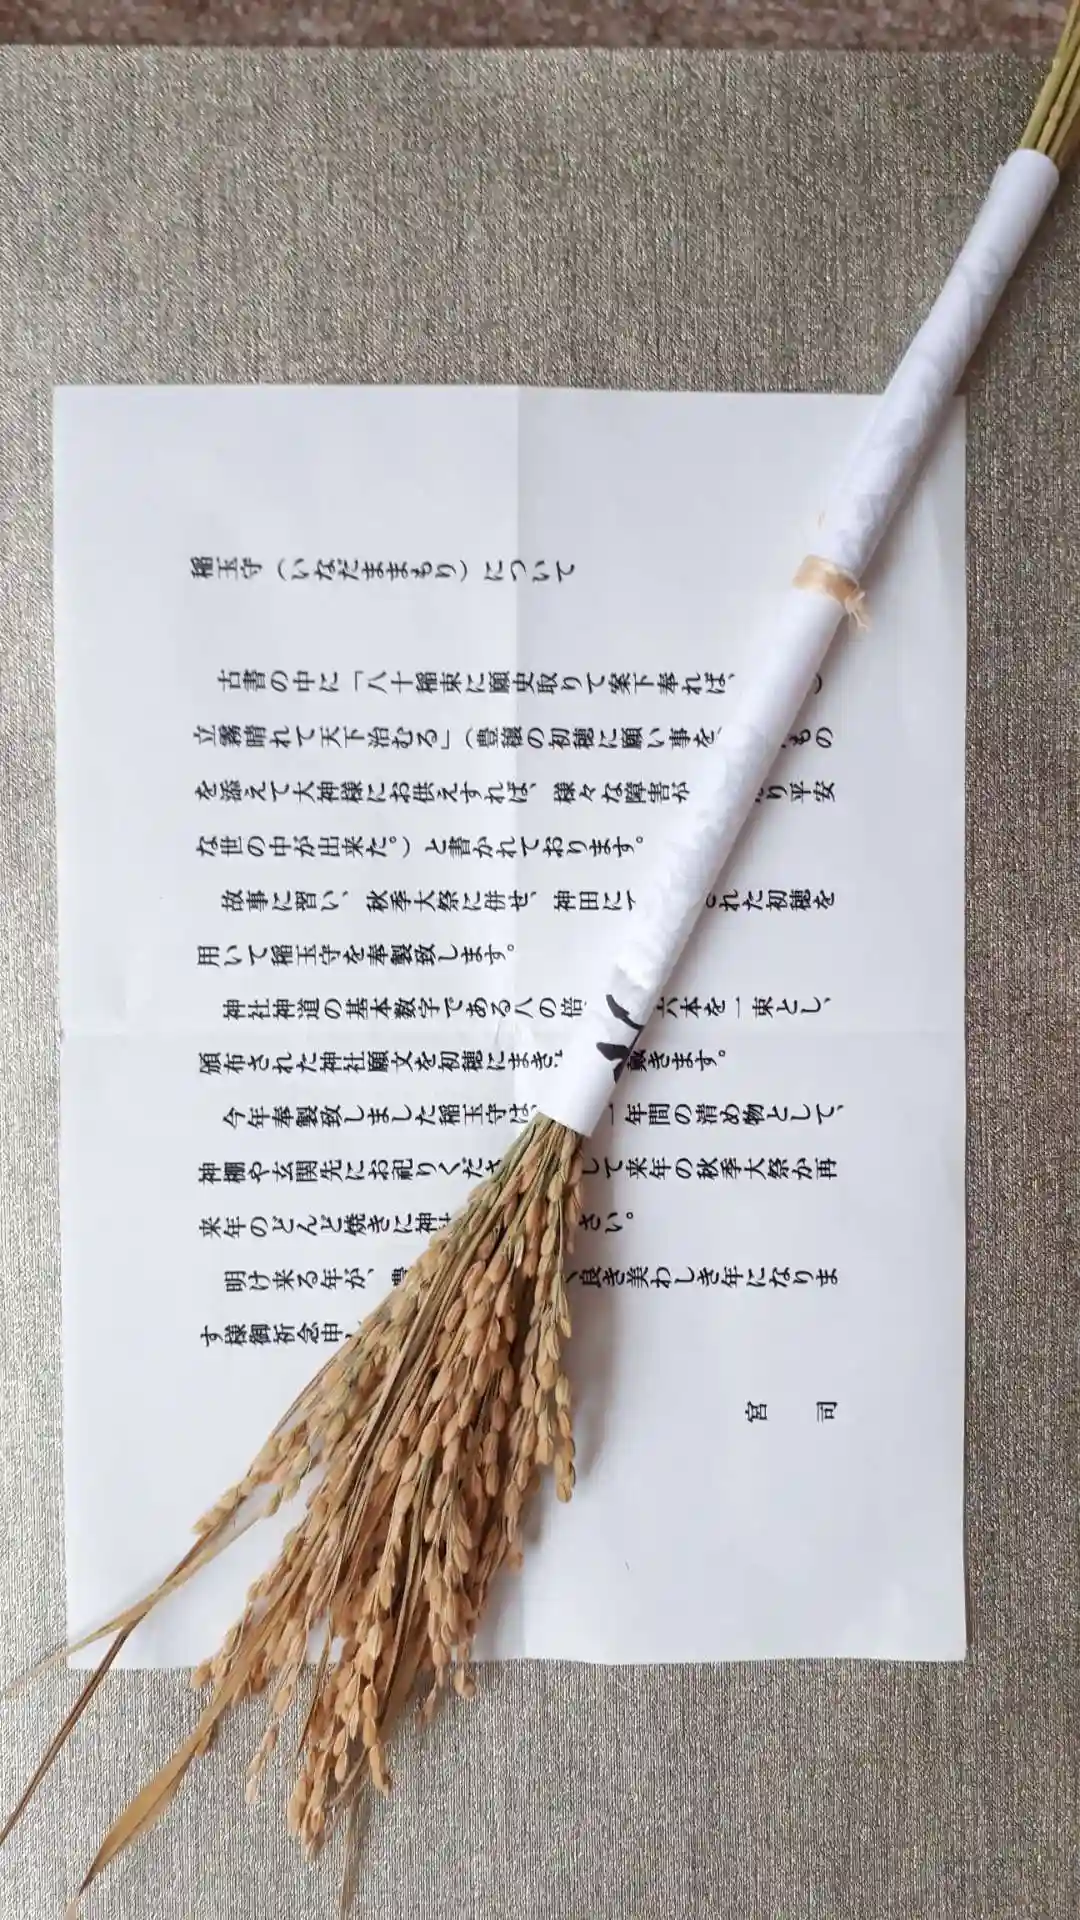 稲玉守（いなだままもり）について
古書の中に「八十稲束に願史取りて案下奉れば、
立霧晴れて天下治むる」（豊穣の初穂に願い事を もの
を添えて大神様にお供えすれば、様々な障害が り平安
な世の中が出来た。）と書かれております。
故事に習い、秋季大祭に併せ、神田に された初穂を
用いて稲玉守を奉製致します。
神社神道の基本数字である八の倍 六本を一束とし、
頒布された神社願文を初穂にまき 戴きます。
今年奉製致しました稲玉守は、 一年間の清め物として、
神棚や玄関先にお祀りくださ して来年の秋季大祭か再
来年のどんど焼きに神社 さい。
明け来る年が、 良き美わしき年になりま
す様御祈念申
宮 司